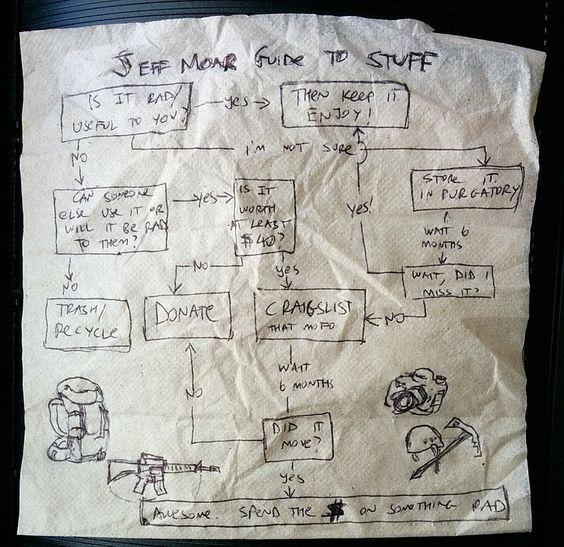 JEFF MOAR GUIDE TO STUFF
IS IT RAD/
USEFUL TO YOU?
YES
THEN KEEP IT
ENJOY!
NO
I'M NOT SURE
CAN SOMEONE
ELSE USE IT OR
WILL IT BE RAD
TO THEM?
YES
IS IT
WORTH
AT LEAST
$40?
YES!
STORE IT
IN PURGATORY
WAIT 6
MONTHS
WAIT, DID I
MISS IT?
NO
NO
YES
NO
TRASH/
RECYCLE
DONATE
CRAIGSLIST
THAT MOFO
NO
WAIT
6 MONTHS
DID IT
MOVE?
YES
AWESOME. SPEND THE $ ON SOMETHING RAD